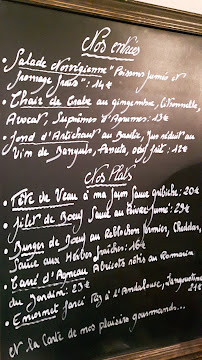 Nos entrées
• Salade Norvégienne "Poissons fumés et
fromage frais" : 14€
• Chair de Crabe au gingembre, Citronnelle,
Avocat, Suprêmes d'Agrumes : 13€
• fond d'Artichaut au Basilic, Jus réduit au
Vin de Banyuls, Pancetta, : 12€
Nos Plats
• Tête de Veau à ma façon Sauce gribiche : 20€
• filet de Bœuf Sauce au Poivre fumé : 29€
• Burger de Bœuf au Reblochon fermier, Cheddar,
Sauce aux Herbes fraîches : 16€
• Carré d'Agneau Abricots rôtis au Romarin
du Jardin : 23€
• Farci Riz à l'Andalouse,
21€
et la Carte de mes plaisirs gourmands...